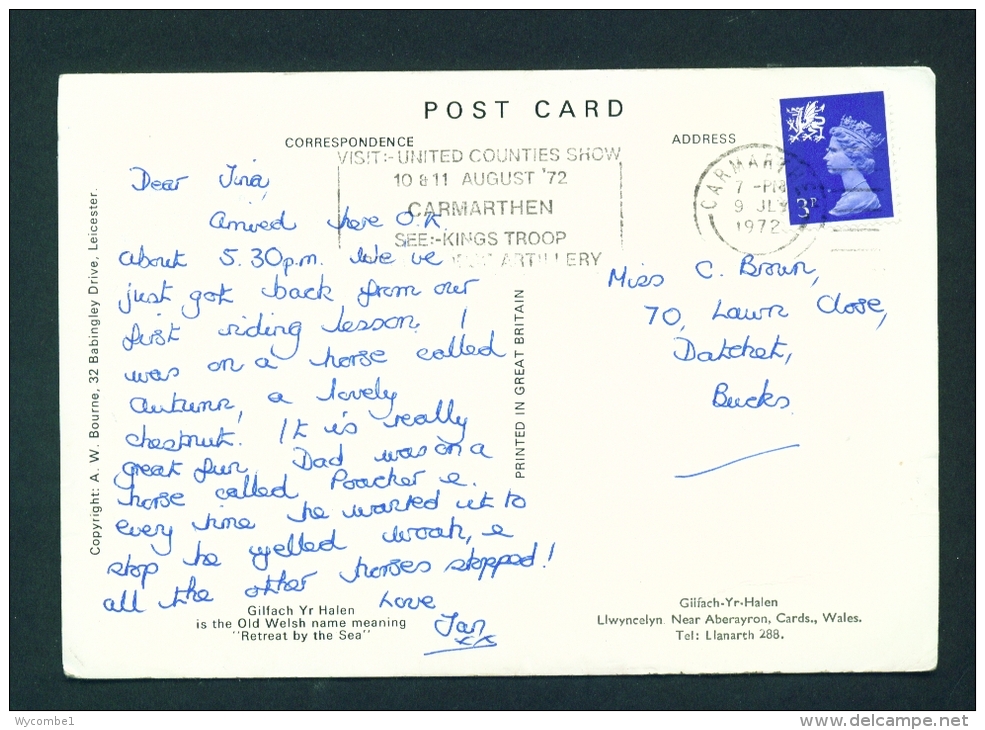 POST CARD
CORRESPONDENCE
ADDRESS
VISIT:- UNITED COUNTIES SHOW
10 & 11 AUGUST '72
CARMARTHEN
SEE:- KINGS TROOP
ARTILLERY
CARMARTHEN
7 - PM
9 JLY
1972
3P
Dear Tina,
Arrived here O.K.
about 5.30p.m. We've
just got back from our
first riding lesson. I
was on a horse called
Autumn, a lovely
chestnut. It is really
great fun. Dad was on a
horse called Poacher &
every time he wanted it to
stop he yelled woah, &
all the other horses stopped!
Love
Jan
xx
Miss C. Brown,
70, Lawn Close,
Datchet,
Bucks.
Copyright: A. W. Bourne, 32 Babingley Drive, Leicester.
PRINTED IN GREAT BRITAIN
Gilfach Yr Halen
is the Old Welsh name meaning
"Retreat by the Sea"
Gilfach-Yr-Halen
Llwyncelyn. Near Aberayron, Cards., Wales.
Tel: Llanarth 288.
Wycombe1
www.delcampe.net